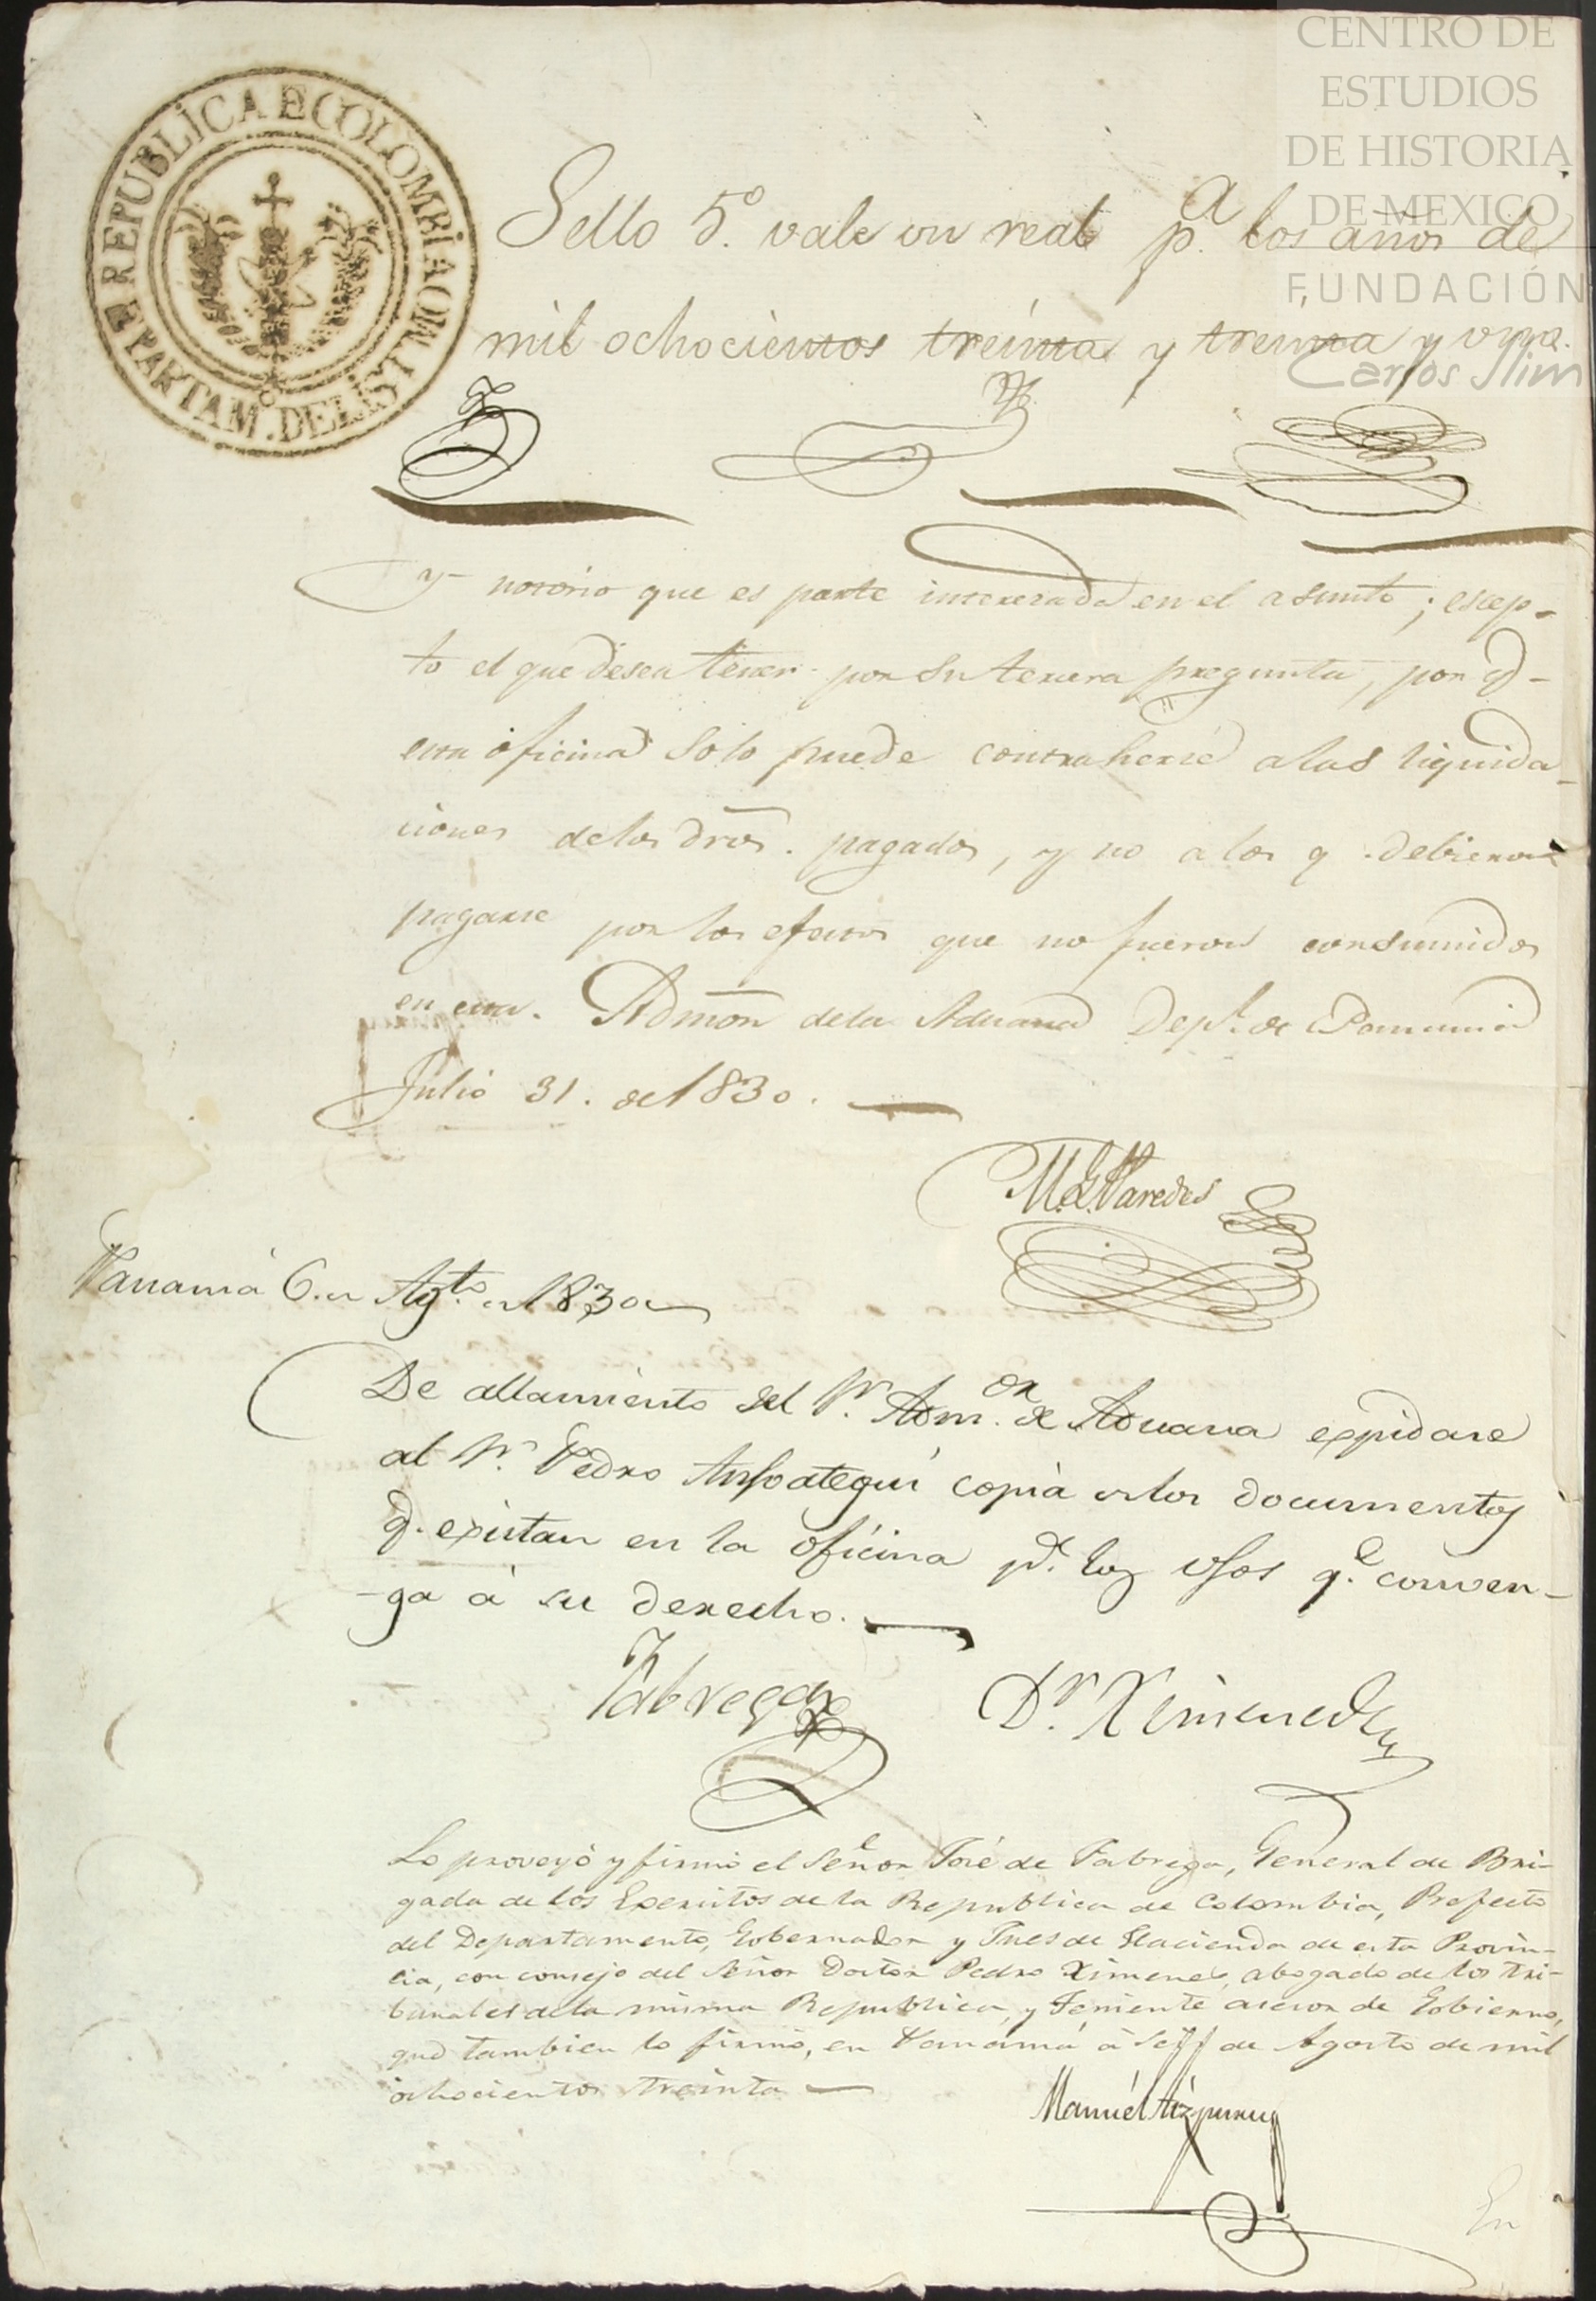 CENTRO DE
ESTUDIOS
DE HISTORIA
DE MEXICO
FUNDACIÓN
Carlos Slim
REPUBLICA E COLOMBIA
DEPARTAM. DEL ISTMO
Sello 5.º vale un real p.ª los años de
mil ochocientos treinta y treinta y uno.
y notorio que es parte interesada en el asunto; escep-
to el que desea tener por su tercera pregunta, por q
esta oficina solo puede contraherse a las liquida-
ciones de los dros. pagados, y no a los q. debieron
pagarse por los efectos que no fueron consumidos
en esta. Admon de la Aduana Dep.l de Panamá
Julio 31. de 1830.
M. J. Paredes
Panamá 6. de Agto. de 1830
De allamiento del Sr. Adm.or de Aduana expidase
al Sr. Pedro Ansoategui copia de los documentos
q. existan en la oficina pa. los usos q.e conven-
-ga à su derecho.
Fabrega Dr. Ximenez
Lo proveyó y firmó el Señor José de Fabrega, General de Bri-
gada de los Exercitos de la Republica de Colombia, Prefecto
del Departamento, Gobernador y Jues de Hacienda de esta Provin-
cia, con consejo del Señor Doctor Pedro Ximenes, abogado de los tri-
bunales de la misma Republica, y Teniente asesor de Gobierno,
que tambien lo firmó, en Panamá à seis de Agosto de mil
ochocientos treinta
Manuél Aizpuru
En